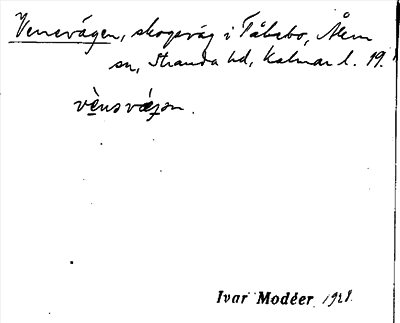 Vensvägen, skogsväg i Tåbebo, Ålem
sn, Stranda hd, Kalmar l. 19.
vènsvä́gən.
Ivar Modéer 1928.